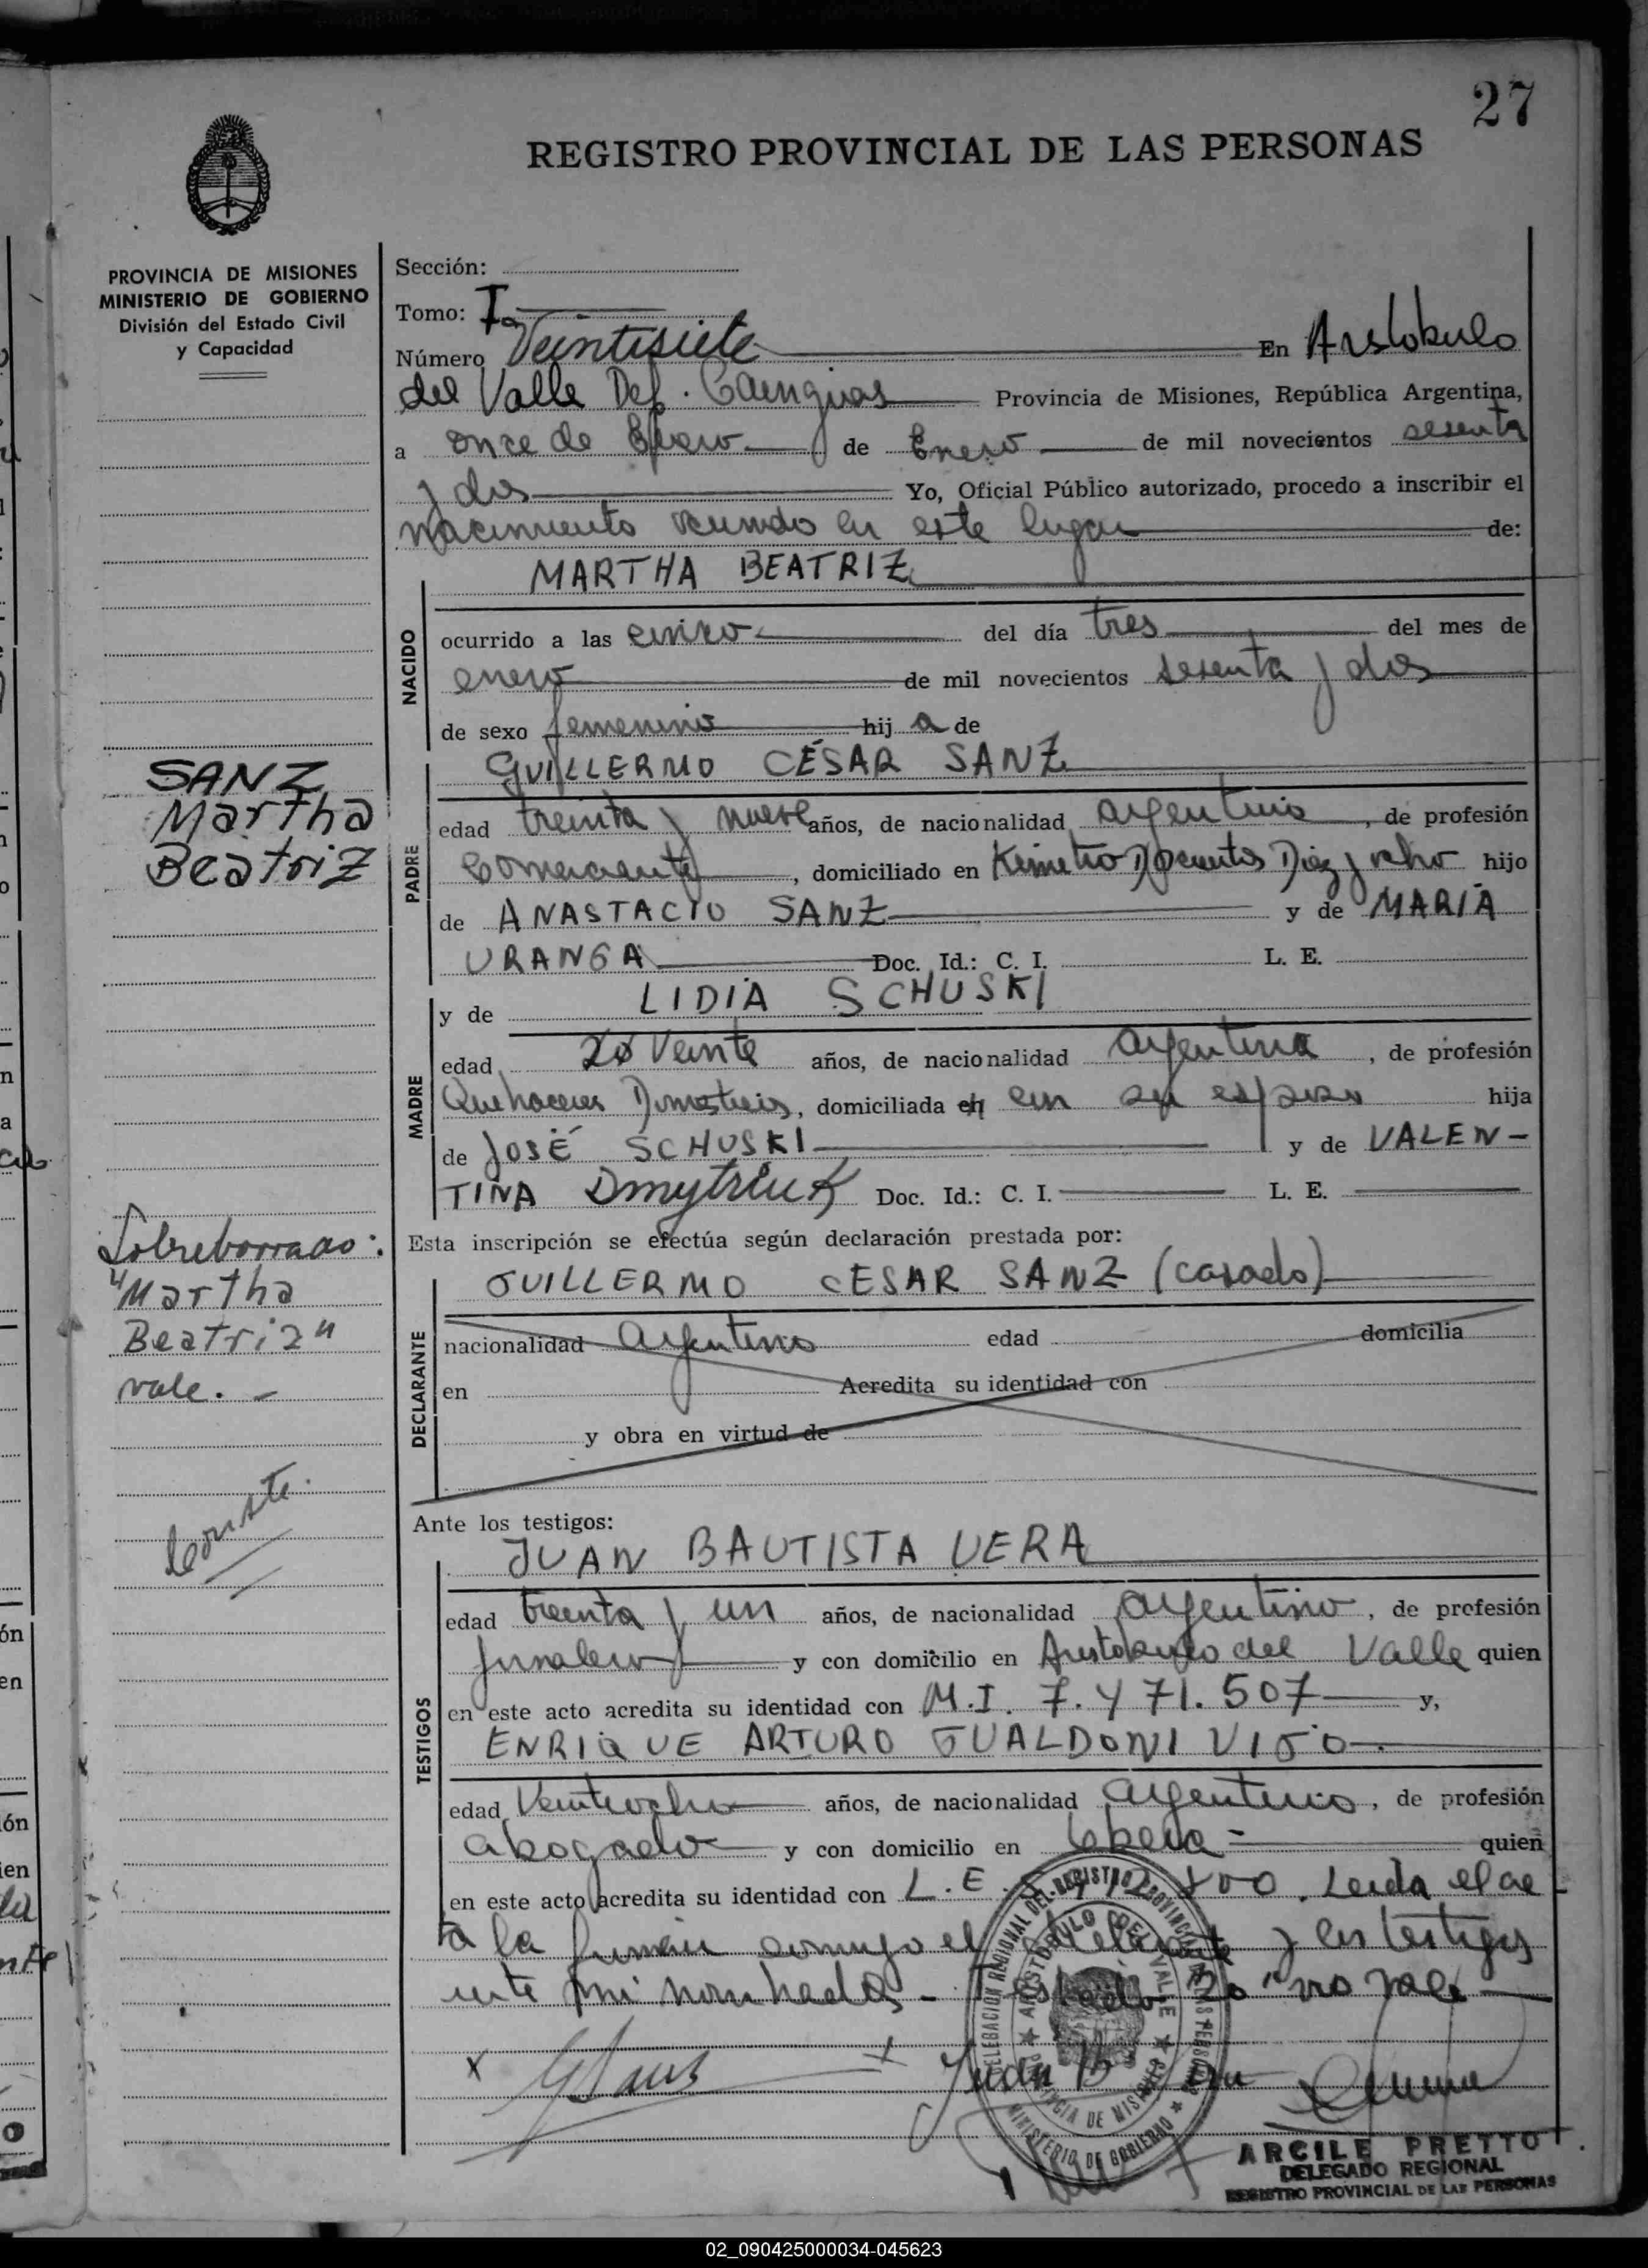 27
REGISTRO PROVINCIAL DE LAS PERSONAS
PROVINCIA DE MISIONES
MINISTERIO DE GOBIERNO
División del Estado Civil
y Capacidad
Sección:
Tomo: I
Número Veintisiete En Aristobulo
del Valle Dep. Cainguas Provincia de Misiones, República Argentina,
a once de Enero de Enero de mil novecientos sesenta
y dos Yo, Oficial Público autorizado, procedo a inscribir el
nacimiento ocurrido en este lugar de:
MARTHA BEATRIZ
NACIDO
ocurrido a las cinco del día tres del mes de
enero de mil novecientos sesenta y dos
de sexo femenino hij a de
GUILLERMO CÉSAR SANZ
SANZ
Martha
Beatriz
PADRE
edad treinta y nueve años, de nacionalidad argentino, de profesión
Comerciante, domiciliado en Kimetro Docientos Diez y ocho hijo
de ANASTACIO SANZ y de MARIA
URANGA Doc. Id.: C. I. L. E.
MADRE
y de LIDIA SCHUSKI
edad Veinte años, de nacionalidad argentina, de profesión
Quehaceres Domesticos, domiciliada en em su esposo hija
de JOSÉ SCHUSKI y de VALEN-
TINA Dmytriuk Doc. Id.: C. I. L. E.
Esta inscripción se efectúa según declaración prestada por:
GUILLERMO CESAR SANZ (casado)
Sobreborrado:
"Martha
Beatriz"
vale.-
DECLARANTE
nacionalidad argentino edad domicilia
en Acredita su identidad con
y obra en virtud de
Conste.
Ante los testigos:
JUAN BAUTISTA VERA
TESTIGOS
edad treinta y un años, de nacionalidad argentino, de profesión
Jornalero y con domicilio en Aristobulo del Valle quien
en este acto acredita su identidad con M.I. 7.471.507 y,
ENRIQUE ARTURO GUALDONI VIGO.
edad Veintiocho años, de nacionalidad argentino, de profesión
abogado y con domicilio en Obera- quien
en este acto acredita su identidad con L.E. Leida el ac-
ta la firman conmigo el y los testigos
ante mi nombrados.- "no vale
GSanz
Juan B
DELEGACION REGIONAL DEL REGISTRO PROVINCIAL DE LAS PERSONAS
ARISTOBULO DEL VALLE
PROVINCIA DE MISIONES
MINISTERIO DE GOBIERNO
ARCILE PRETTO
DELEGADO REGIONAL
REGISTRO PROVINCIAL DE LAS PERSONAS
02_090425000034-045623